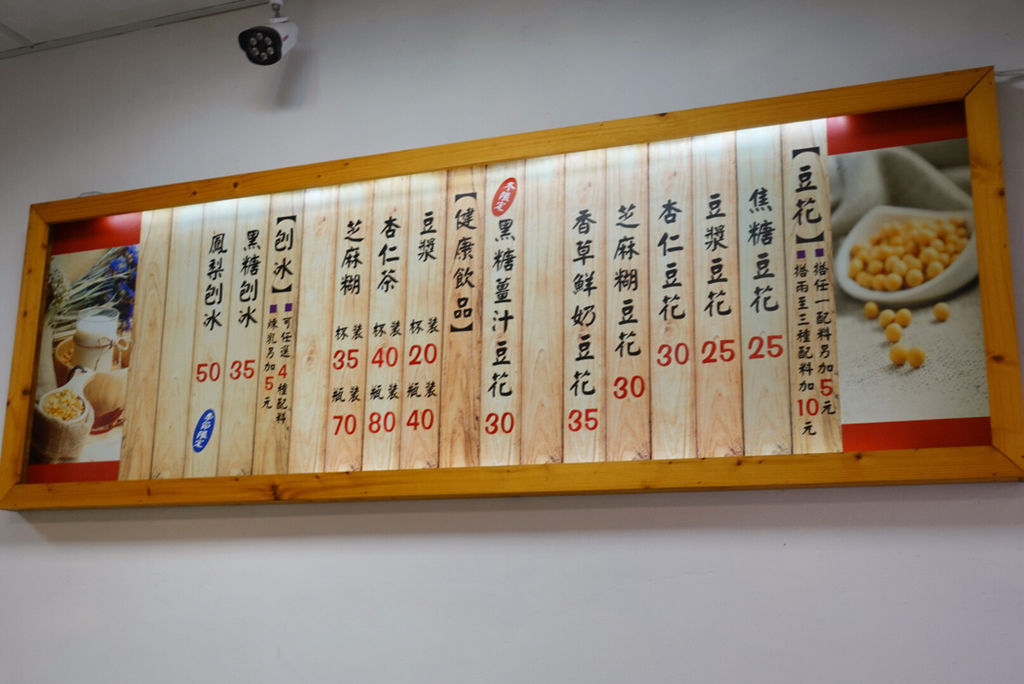 【豆花】
■搭任一配料另加5元
■搭兩至三種配料加10元
焦糖豆花 25
豆漿豆花 25
杏仁豆花 30
芝麻糊豆花 30
香草鮮奶豆花 35
冬限定
黑糖薑汁豆花 30
【健康飲品】
豆漿 杯裝20 瓶裝40
杏仁茶 杯裝40 瓶裝80
芝麻糊 杯裝35 瓶裝70
【刨冰】
■可任選4種配料
■煉乳另加5元
黑糖刨冰 35
鳳梨刨冰 50
限定